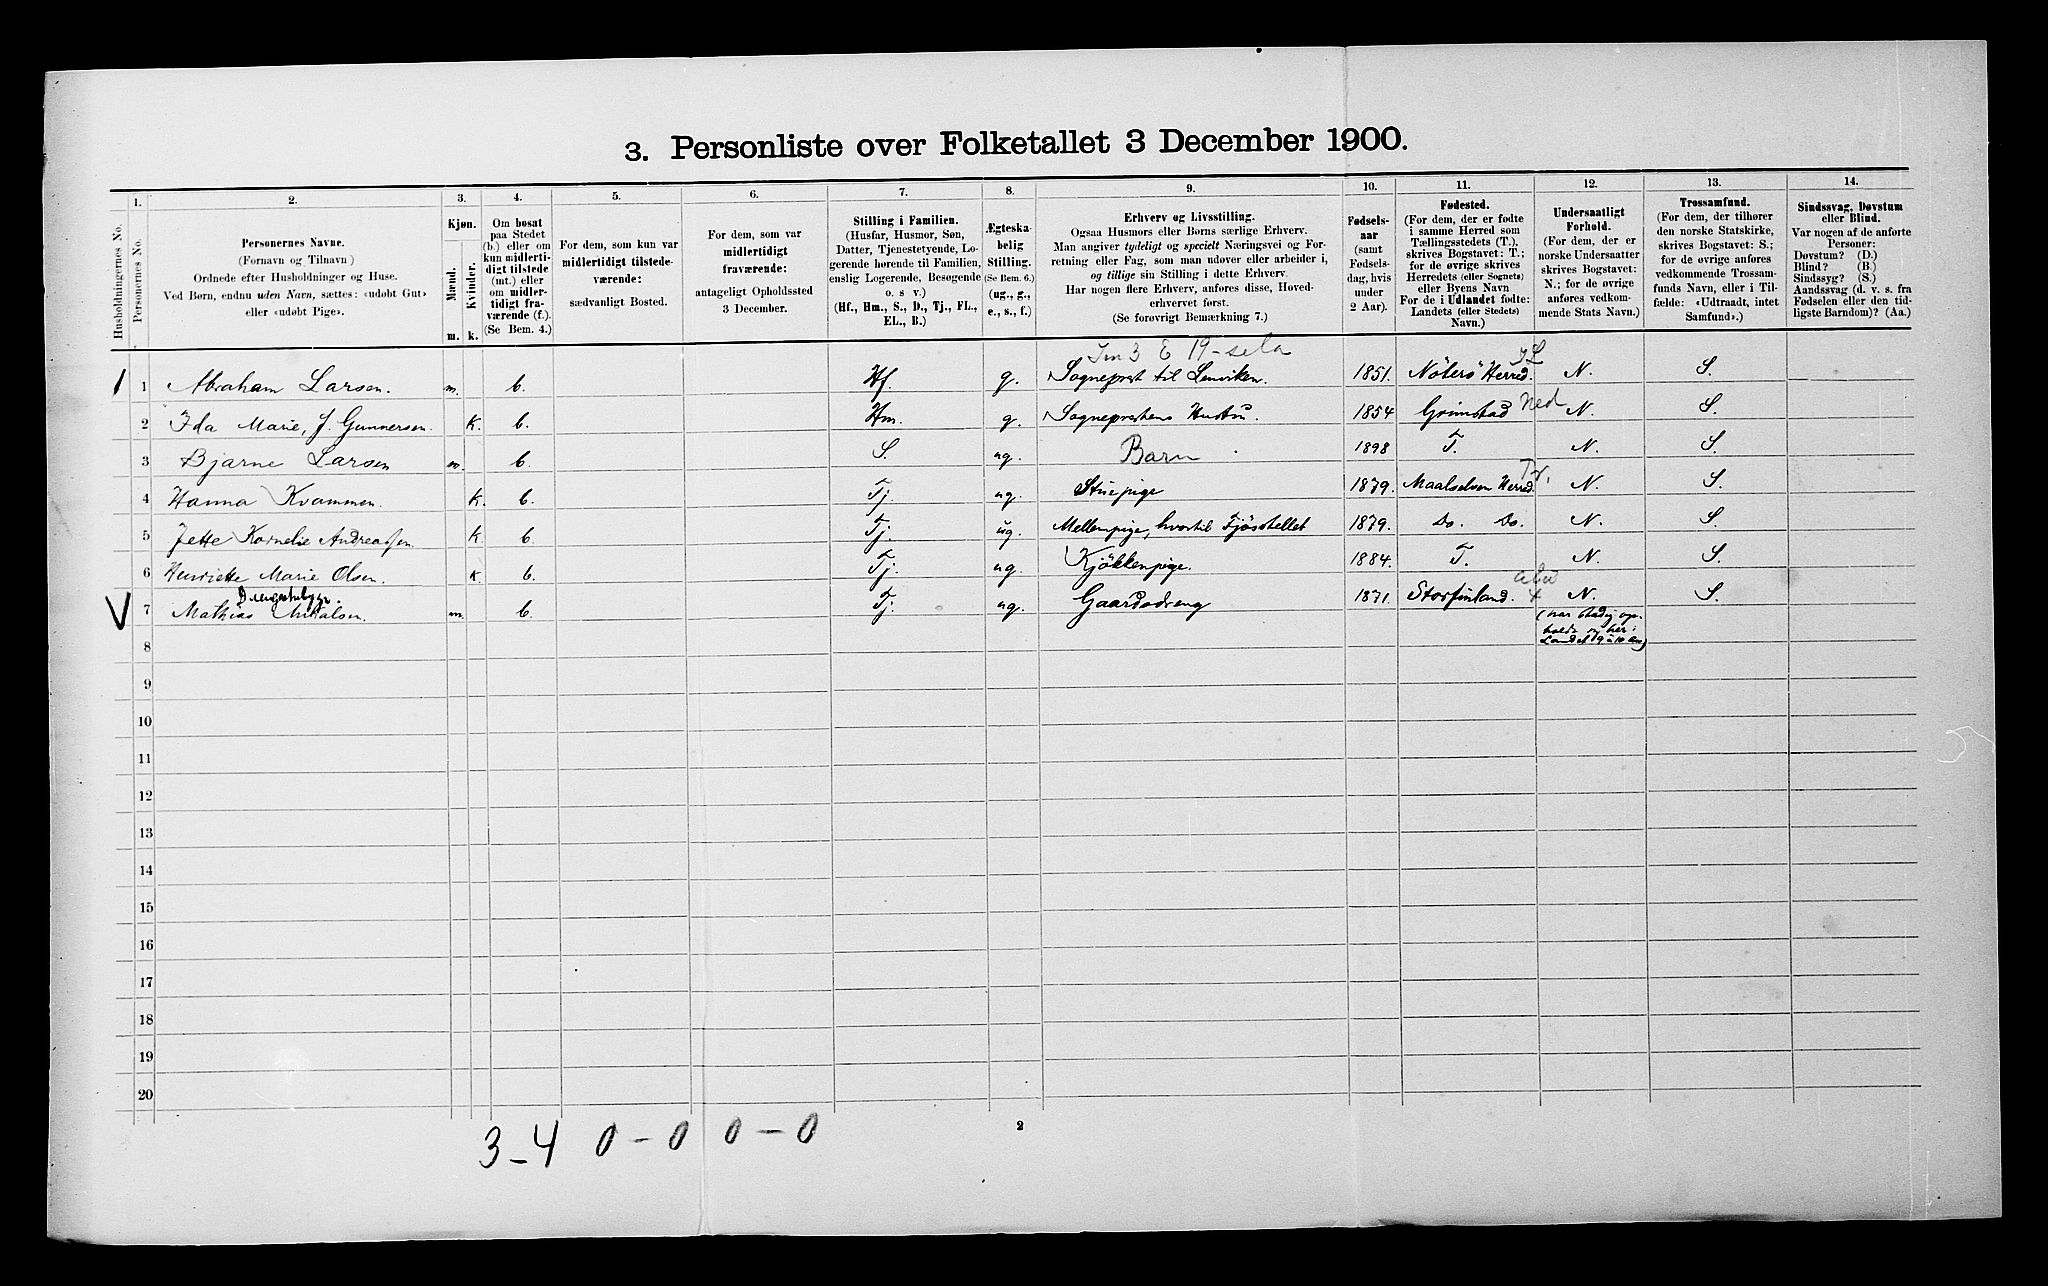 3. Personliste over Folketallet 3 December 1900.
1. 2. 3. 4. 5. 6. 7. 8. 9. 10. 11. 12. 13. 14.
Husholdningernes No.
Personernes No.
Personernes Navne.
(Fornavn og Tilnavn)
Ordnede efter Husholdninger og Huse.
Ved Børn, endnu uden Navn, sættes: «udøbt Gut»
eller «udøbt Pige».
Kjøn.
Mænd.
Kvinder.
m. k.
Om bosat
paa Stedet
(b.) eller om
kun midlerti-
digt tilstede
(mt.) eller
om midler-
tidigt fra-
værende (f.).
(Se Bem. 4.)
For dem, som kun var
midlertidigt tilstede-
værende:
sædvanligt Bosted.
For dem, som var
midlertidigt
fraværende:
antageligt Opholdssted
3 December.
Stilling i Familien.
(Husfar, Husmor, Søn,
Datter, Tjenestetyende, Lo-
gerende hørende til Familien,
enslig Logerende, Besøgende
o. s v.)
(Hf., Hm., S., D., Tj., FL.,
EL., B.)
Ægteska-
belig
Stilling.
(Se Bem. 6.)
(ug., g.,
e., s., f.)
Erhverv og Livsstilling.
Ogsaa Husmors eller Børns særlige Erhverv.
Man angiver tydeligt og specielt Næringsvei og For-
retning eller Fag, som man udøver eller arbeider i,
og tillige sin Stilling i dette Erhverv.
Har nogen flere Erhverv, anføres disse, Hoved-
erhvervet først.
(Se forøvrigt Bemærkning 7.)
Fødsels-
aar
(samt
Fødsels-
dag, hvis
under
2 Aar).
Fødested.
(For dem, der er fødte
i samme Herred som
Tællingsstedets (T.),
skrives Bogstavet: T.;
for de øvrige skrives
Herredets (eller Sognets)
eller Byens Navn
For de i Udlandet fødte:
Landets (eller Stedets)
Navn.)
Undersaatligt
Forhold.
(For dem, der er
norske Undersaatter
skrives Bogstavet:
N.; for de øvrige
anføres vedkom-
mende Stats Navn.)
Trossamfund.
(For dem, der tilhører
den norske Statskirke,
skrives Bogstavet: S.;
for de øvrige anføres
vedkommende Trossam-
funds Navn, eller i Til-
fælde: «Udtraadt, intet
Samfund».)
Sindssvag, Døvstum
eller Blind.
Var nogen af de anførte
Personer:
Døvstum? (D.)
Blind? (B.)
Sindssyg? (S.)
Aandssvag (d. v. s. fra
Fødselen eller den tid-
ligste Barndom)? (Aa.)
1 1 Abraham Larsen. m. b. Hf. g. Sogneprest til Lenviken. 1851. Nøterø Herred. N. S.
2 Ida Marie, J. Gunnersen. K. b. Hm. g. Sogneprestens Hustru. 1854 Grimstad Ned N. S.
3 Bjarne Larsen m. b. S. ug. Barn 1898 T. N. S.
4 Hanna Kvammen. K. b. Tj. ug. Stuepige 1879. Maalselven Herred. N. S.
5 Jette Kornelie Andreassen. K. b. Tj. ug. Mellempige, hvortil Fjøsstellet 1879. Do. Do. N. S.
6 Henriette Marie Olsen. K. b. Tj. ug. Kjøkkenpige. 1884. T. N. S.
V 7 Mathias Mikalsen. m. b. Tj. ug. Gaardsdreng 1871. Storfinland. N. S.
8
9
10
11
12
13
14
15
16
17
18
19
20
3-4 0-0 0-0
2